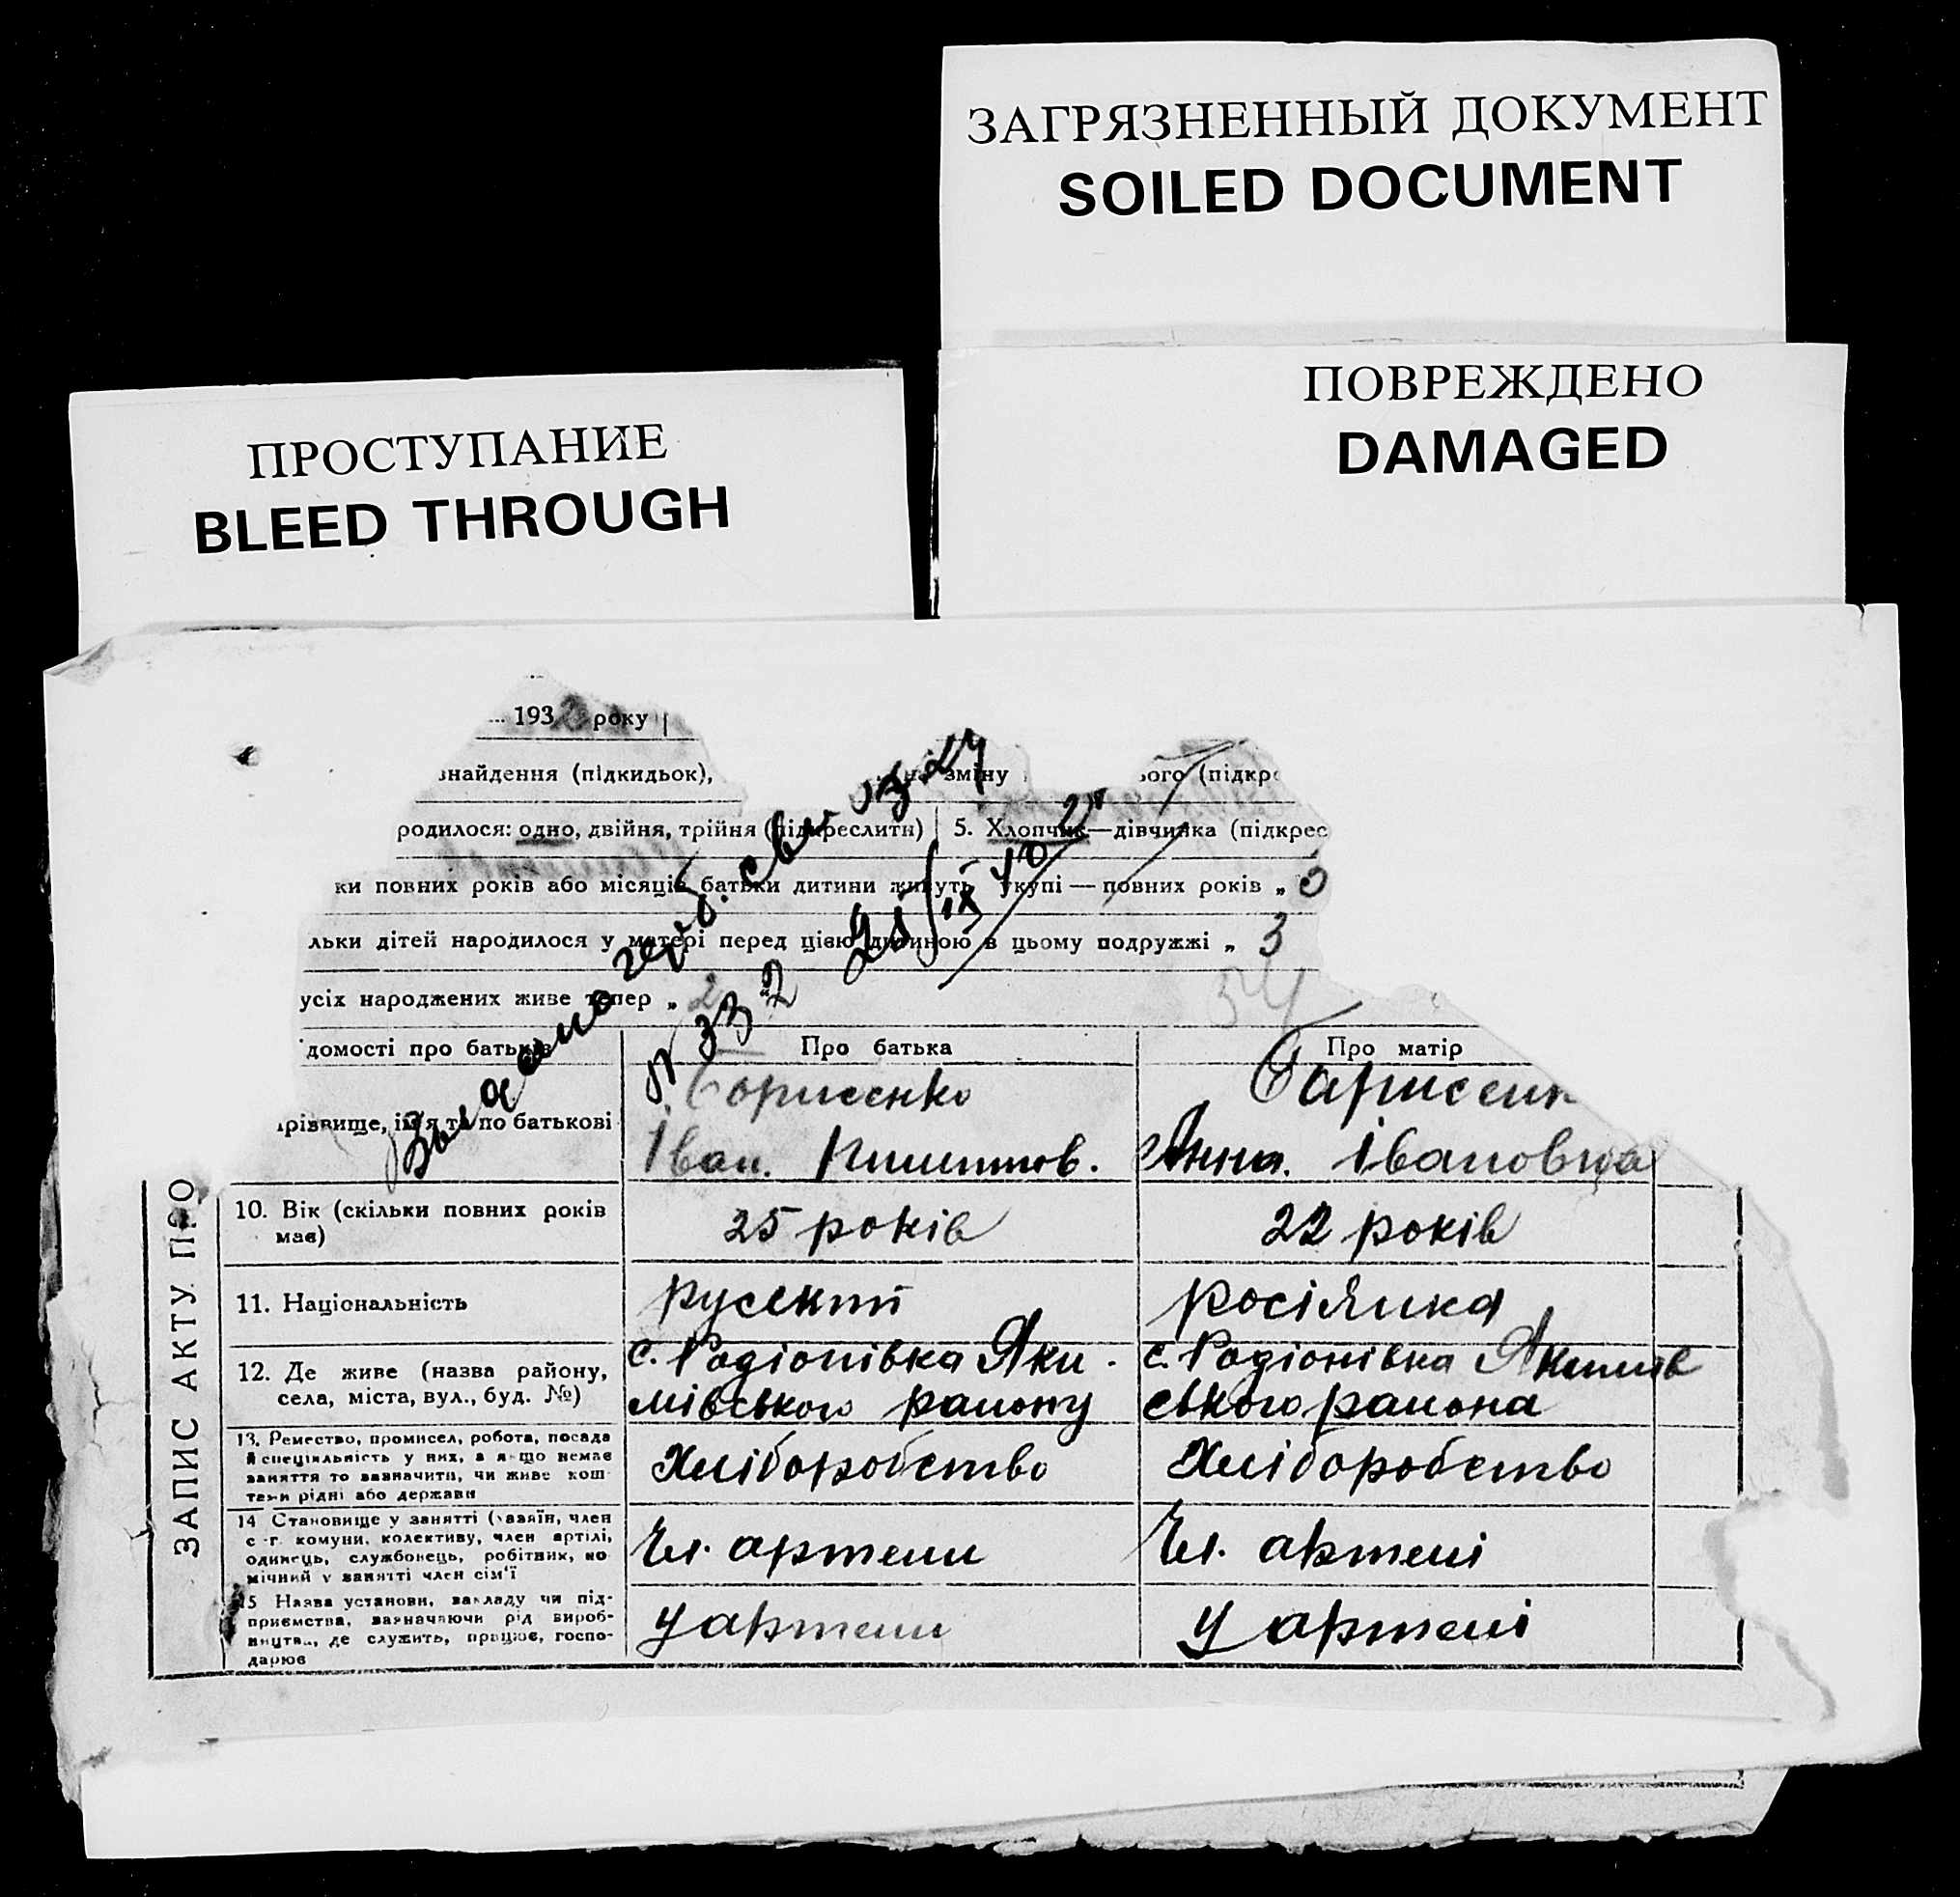 ЗАГРЯЗНЕННЫЙ ДОКУМЕНТ
SOILED DOCUMENT
ПОВРЕЖДЕНО
DAMAGED
ПРОСТУПАНИЕ
BLEED THROUGH
193 року
знайдення (підкидьок),
зміну
ього (підкр
родилося: одно, двійня, трійня (підкреслити)
5. Хлопчик—дівчинка (підкрес
ки повних років або місяців батьки дитини живуть укупі — повних років „
льки дітей народилося у матері перед цією дитиною в цьому подружжі „ 3
усіх народжених живе тепер „ 2
Выдано
№ 332 25/IX 40
домості про батьків
Про батька
Про матір
ізвище, ім'я та по батькові
Борисенко
Іван.
Борисенк
Анна. Івановна
10. Вік (скільки повних років
має)
25 років
22 років
11. Національність
русский
росіянка
12. Де живе (назва району,
села, міста, вул., буд. №)
с. Родіонівка Яки-
мівського району
с. Родіонівка Якимів
ського района
13. Ремество, промисел, робота, посада
й спеціяльність у них, а якщо немає
заняття то зазначити, чи живе кош-
тами рідні або держави
Хліборобство
Хліборобство
14 Становище у занятті (хазяїн, член
с.-г. комуни, колективу, член артілі,
одинець, службовець, робітник, по-
мічний у занятті член сім'ї
Чл. артели
Чл. артелі
15 Назва установи, закладу чи під-
приємства, зазначаючи рід вироб-
ництва, де служить, працює, госпо-
дарює
У артели
У артелі
ЗАПИС АКТУ ПРО